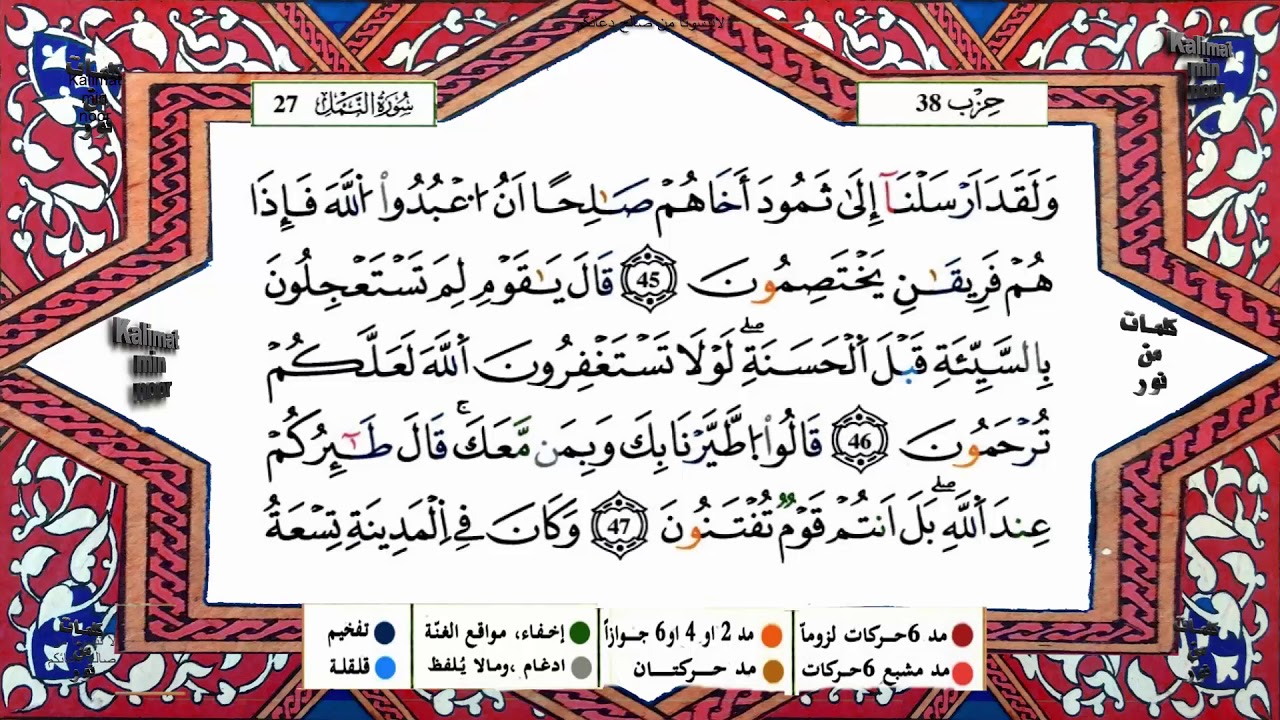 لا تنسونا من صالح دعائكم
حِزْب 38
سُورَةُ النَّمْل 27
وَلَقَدَ اَرْسَلْنَآ إِلَىٰ ثَمُودَ أَخَاهُمْ صَٰلِحًا اَنُ اُ۟عْبُدُوا۟ اُ۬للَّهَ فَإِذَا
هُمْ فَرِيقَٰنِ يَخْتَصِمُونَ 45 قَالَ يَٰقَوْمِ لِمَ تَسْتَعْجِلُونَ
بِالسَّيِّئَةِ قَبْلَ اَلْحَسَنَةِۖ لَوْلَا تَسْتَغْفِرُونَ اَللَّهَ لَعَلَّكُمْ
تُرْحَمُونَ 46 قَالُوا۟ اُ۪طَّيَّرْنَا بِكَ وَبِمَن مَّعَكَۚ قَالَ طَٰٓئِرُكُمْ
عِندَ اَللَّهِۖ بَلَ اَنتُمْ قَوْمٌ تُفْتَنُونَ 47 وَكَانَ فِے اِلْمَدِينَةِ تِسْعَةُ
Kalimat
min
noor
كلمات
من
نور
مد 6 حـركات لزوماً
مد 2 او 4 او 6 جـوازاً
إخـفـاء، مواقع الغنّة
تفخيم
مد مشبع 6 حركات
مد حـركتـــان
ادغام ،ومالا يُلفظ
قلقلة